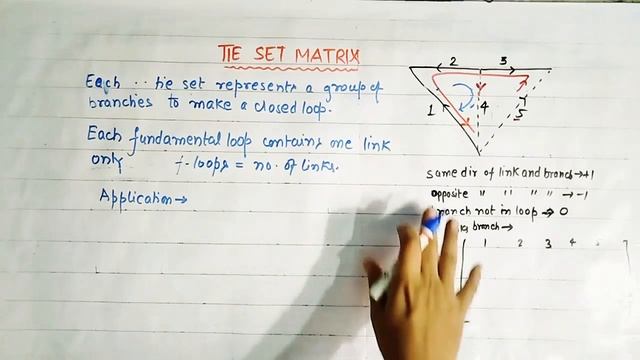 TIE SET MATRIX
Each .. tie set represents a group of
branches to make a closed loop.
Each fundamental loop contains one link
only f-loops = no. of links.
Application→
2 3
1 4 5
same dir of link and branch→+1
opposite " " " " → -1
branch not in loop → 0
branch →
1 2 3 4